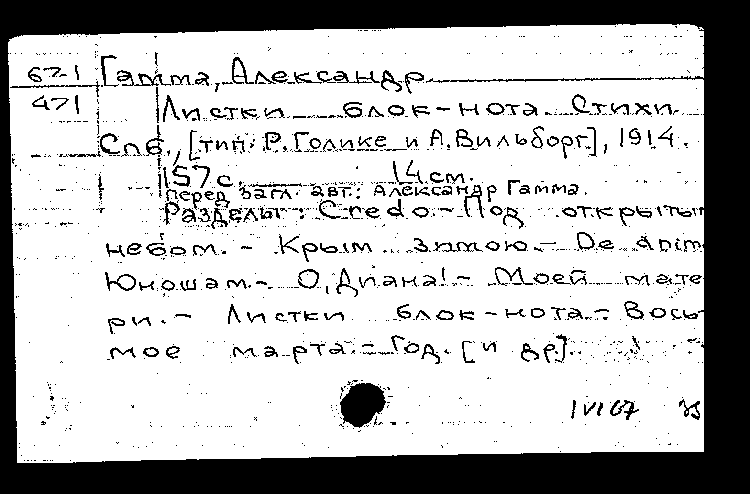 67-1 Гамма, Александр.
471 Листки блок-нота. Стихи.
Спб., [тип. Р.Голике и А.Вильборг], 1914.
157 с. 14 см.
перед загл. авт.: Александр Гамма.
Разделы: Credo.- Под открытым
небом. - Крым зимою.- De anim
Юношам.- О, Диана!- Моей мате-
ри.- Листки блок-нота.- Вось-
мое марта.- Год. [и др.].
1 VI 67